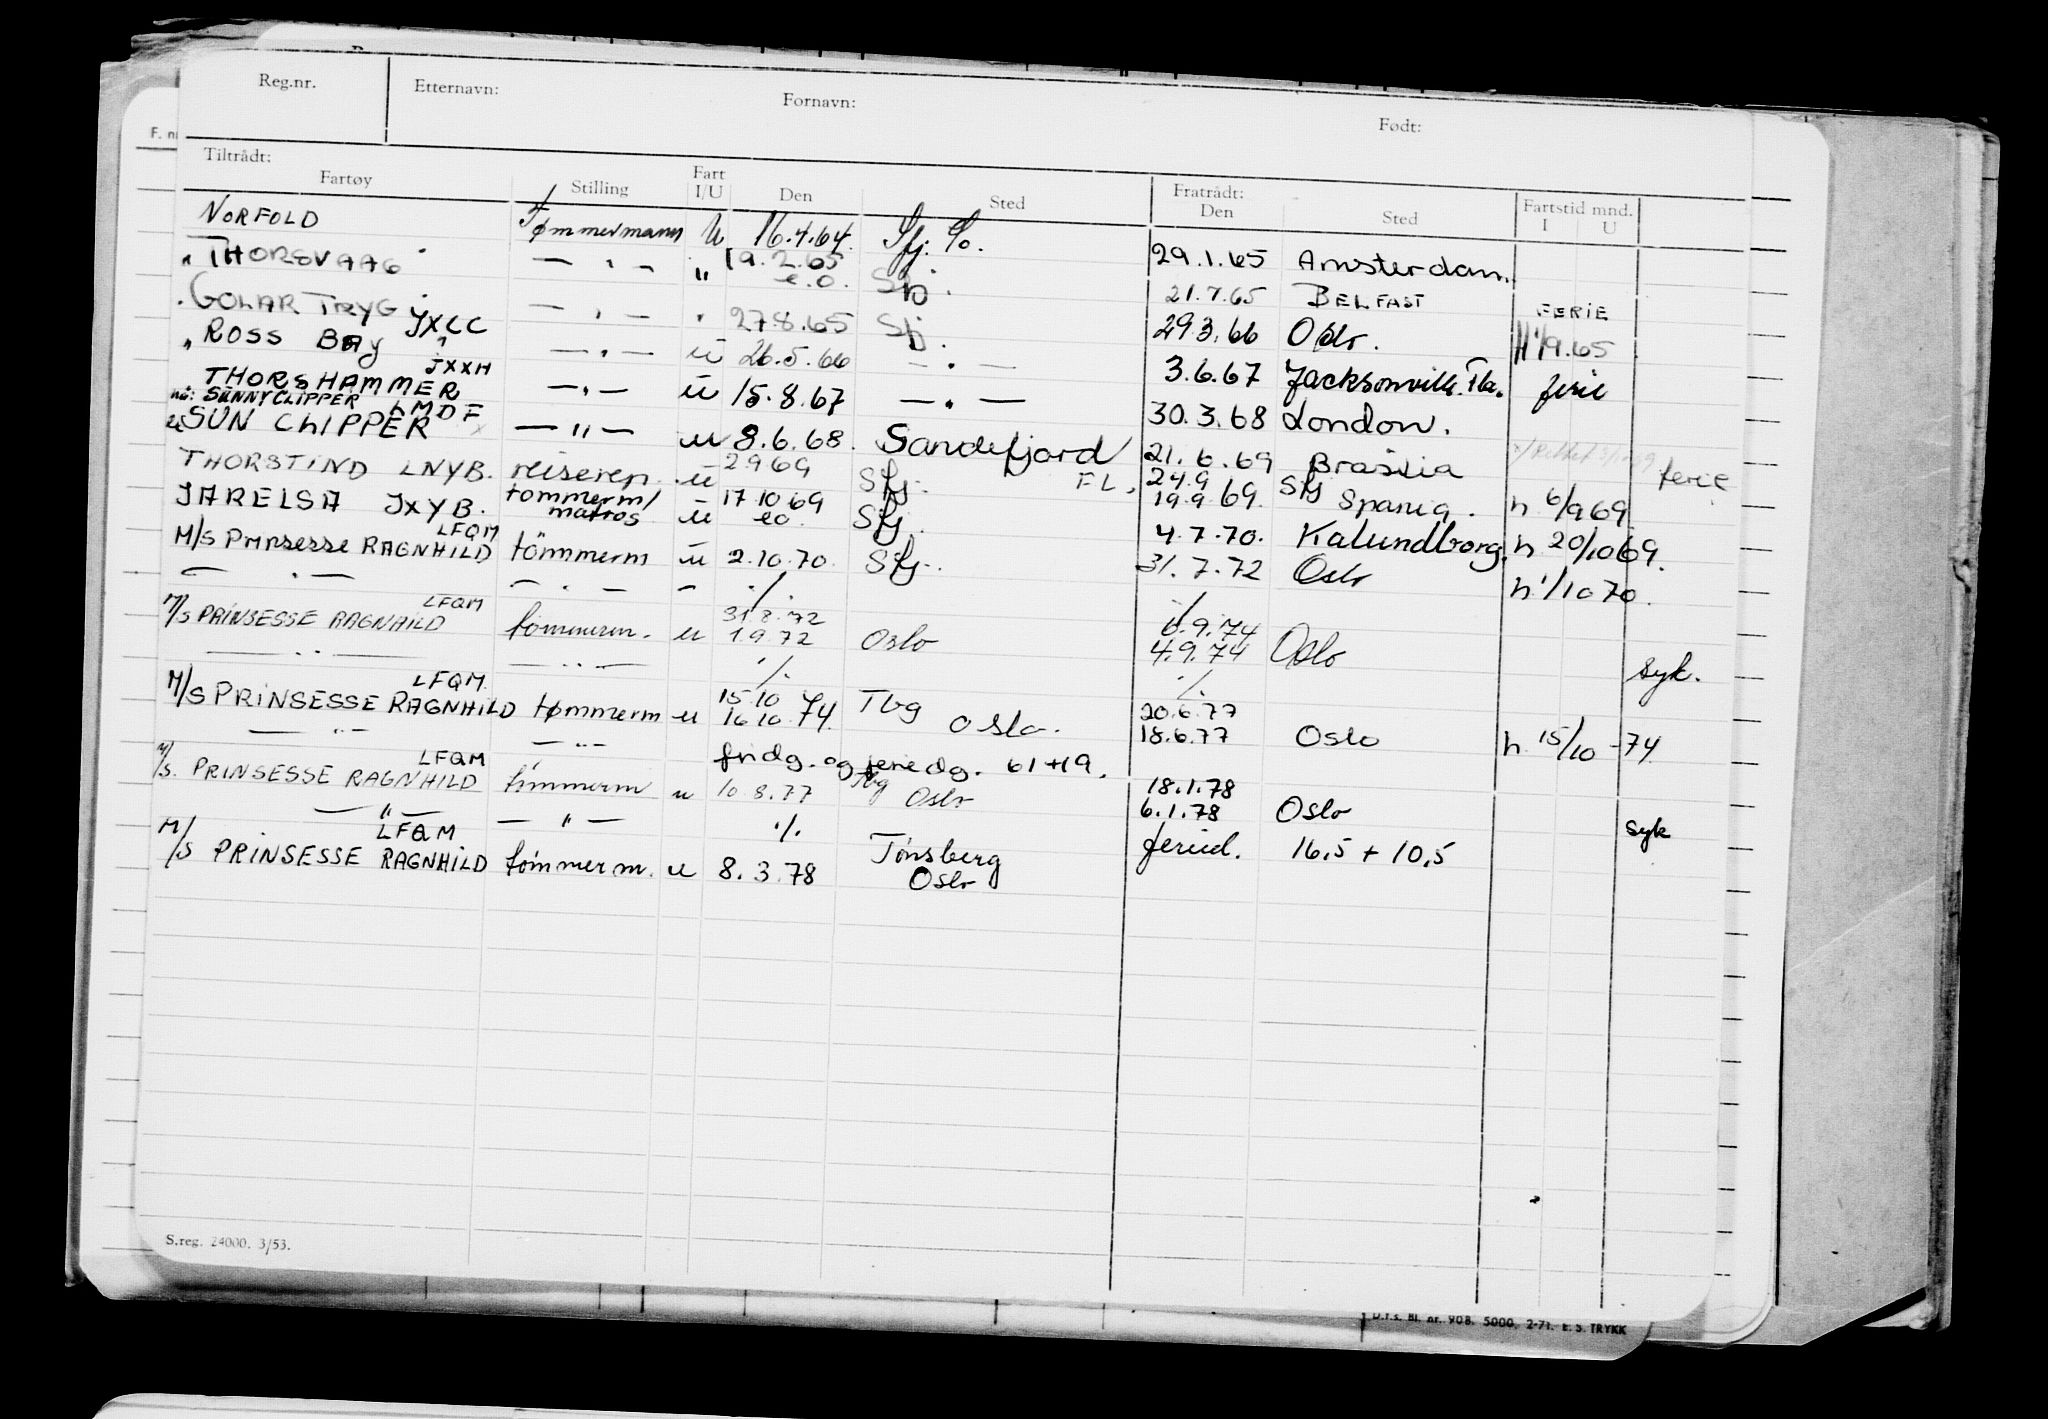 Reg.nr. Etternavn: Fornavn: Født:
F. n
Tiltrådt: Fratrådt:
Fartøy Stilling Fart I/U Den Sted Den Sted Fartstid mnd. I U
NORFOLD Tømmermann U 16.4.64. Sfj. 29.1.65 Amsterdam.
" THORSVAAG — " — " 19.2.65 e.o. Sfj. 21.7.65 BELFAST FERIE
" GOLAR TRYG JXCC — " — " 27.8.65 Sfj. 29.3.66 Oslo. 1/9.65
" ROSS BAY JXXH — " — u 26.5.66 — " — 3.6.67 Jacksonville. Fla. ferie
THORSHAMMER — " — u 15.8.67 — " — 30.3.68 London.
nå: SUNNY CLIPPER LMDF
SUN CLIPPER — " — u 8.6.68. Sandefjord 21.6.69 Brasilia ferie
THORSTIND LNYB. reiserep. u 2969 Sfj. FL. 24.9 19.9.69. Sfj Spania. h 6/9 69
JARELSA JXYB. tømmerm/ matros u 17.10.69 eo. Sfj. 4.7.70. Kalundborg. h 20/10 69.
LFQM
M/S Prinsesse RAGNHILD tømmerm u 2.10.70. Sfj. 31.7.72 Oslo h 1/10 70.
— " — — " — — ./. ./.
LFQM 31.8.72 6.9.74
M/S PRINSESSE RAGNHILD tømmerm. u 1.9.72 Oslo 4.9.74 Oslo syk.
— " — — " — ./. ./.
LFQM 15.10 Tbg 20.6.77
M/S PRINSESSE RAGNHILD tømmerm u 16.10.74. Oslo. 18.6.77 Oslo h. 15/10 -74
— " — — " — fridg. og feriedg. 61+19.
LFQM Tbg 18.1.78
M/S. PRINSESSE RAGNHILD tømmerm u 10.8.77 Oslo 6.1.78 Oslo syk
— " — — " — ./. Tønsberg feried. 16,5 + 10,5
LFQM
M/S PRINSESSE RAGNHILD tømmerm. u 8.3.78 Oslo
S.reg. 24000. 3/53.
D.f.s. Bl. nr. 908. 5000. 2-71. E. S. TRYKK